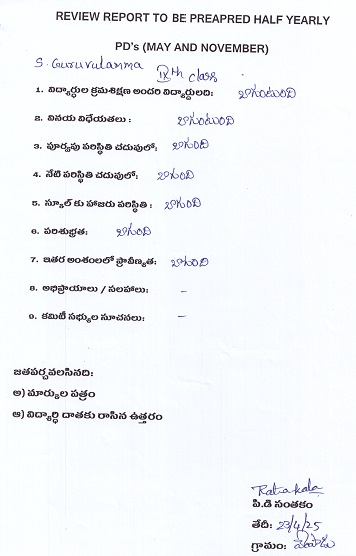 REVIEW REPORT TO BE PREAPRED HALF YEARLY
PD's (MAY AND NOVEMBER)
S. Guruvulamma
IXth class
1. విద్యార్థుల క్రమశిక్షణ అందరి విద్యార్థులది: బాగుంటుంది
2. వినయ విధేయతలు : బాగుంటుంది
3. పూర్వపు పరిస్థితి చదువులో: బాగుంది
4. నేటి పరిస్థితి చదువులో: బాగుంది
5. స్కూల్ కు హాజరు పరిస్థితి : బాగుంది
6. పరిశుభ్రత: బాగుంది
7. ఇతర అంశంలలో ప్రావీణ్యత: బాగుంది
8. అభిప్రాయాలు / సలహాలు: –
9. కమిటీ సభ్యుల సూచనలు: –
జతపర్చవలసినది:
అ) మార్కుల పత్రం
ఆ) విద్యార్ధి దాతకు రాసిన ఉత్తరం
Ratnakala
పి.డి సంతకం
తేదీ: 23/4/25
గ్రామం: